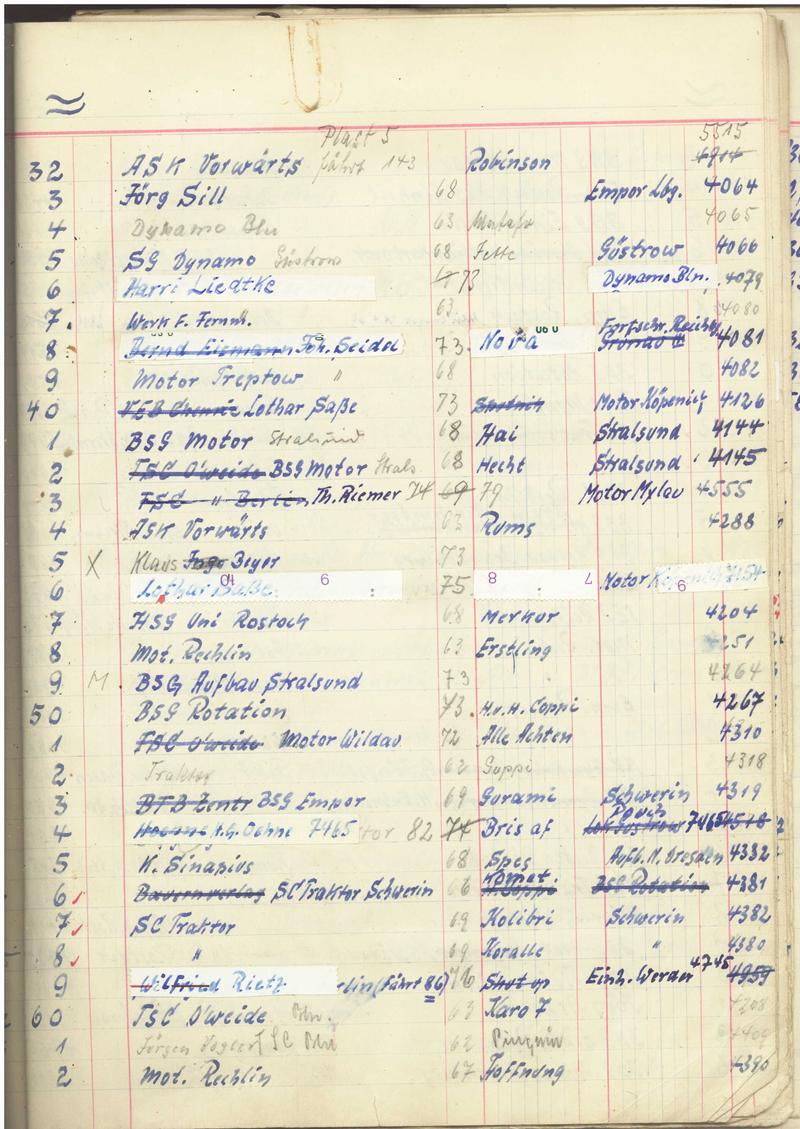 Plast 5 5515
32 ASK Vorwärts fährt 143 Robinson 4914
3 Jörg Sill 68 Empor Lbg. 4064
4 Dynamo Bln 63 4065
5 SG Dynamo Güstrow 68 Fette Güstrow 4066
6 Harri Liedtke 73 Dynamo Bln. 4079
7. Werk F. Fernm. 63 4080
8 Bernd Eismann Joh. Seidel 73. Nova Fortschr. Grünau 4081
9 Motor Treptow " 68 4082
40 VEB Chemie Lothar Saße 73 Sputnik Motor Köpenick 4126
1 BSG Motor Stralsund 68 Hai Stralsund 4144
2 TSC O'weide BSG Motor Strals 68 Hecht Stralsund 4145
3 TSC " Berlin Th. Riemer 74 69 79 Motor Mylau 4555
4 ASK Vorwärts 63 Rums 4288
5 X Klaus Ingo Beyer 73
6 Lothar Saße 75 Motor
7 HSG Uni Rostock 68 Merkur 4204
8 Mot. Rechlin 63 Erstling 4251
9 M BSG Aufbau Stralsund 73 4264
50 BSG Rotation 73 H.u.H. Coppi 4267
1 TSC O'weide Motor Wildau 72 Alle Achten 4310
2 Traktor 62 Guppi 4318
3 BTB Zentr BSG Empor 69 Gurami Schwerin 4319
4 H.G. Oehne 7465 82 74 Bris af Pouch Lok Güstrow 7465 4518
5 K. Sinapius 68 Spes Aufb. M. Dresden 4332
6 Bauernverlag SC Traktor Schwerin 66 Komet. H. Coppi BSG Rotation 4381
7 SC Traktor 69 Kolibri Schwerin 4382
8 " 69 Koralle " 4380
9 Wilfried Rietz rlin (fährt 86) 76 Shut up Einh. Werder 4745 4959
60 TSC O'weide Bln. 63 Karo 7 4208
1 Jörgen SC Bln 62 Pinguin 4409
2 Mot. Rechlin 67 Hoffnung 4390